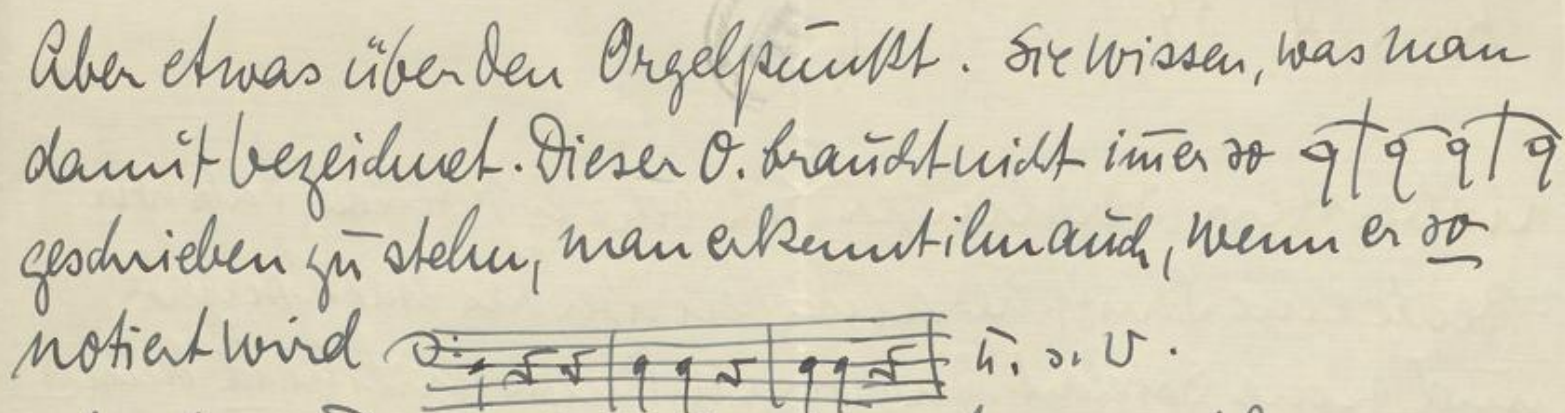 Aber etwas über den Orgelpunkt. Sie wissen, was man
damit bezeichnet. Dieser O. braucht nicht im̅er so
geschrieben zu stehn, man erkennt ihn auch, wenn er so
notiert wird u. s. w.